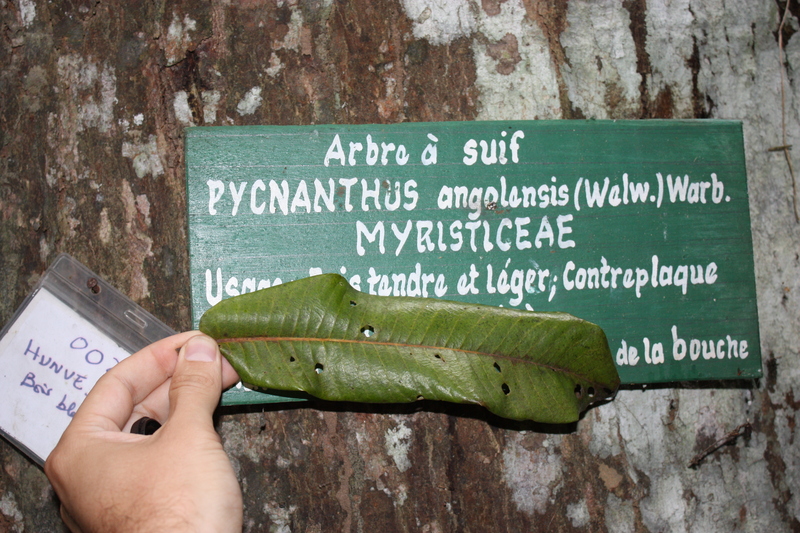 Arbre à suif
PYCNANTHUS angolensis (Welw.) Warb.
MYRISTICEAE
Usage Bois tendre et léger; Contreplaque
de la bouche
HUNVE
Bois